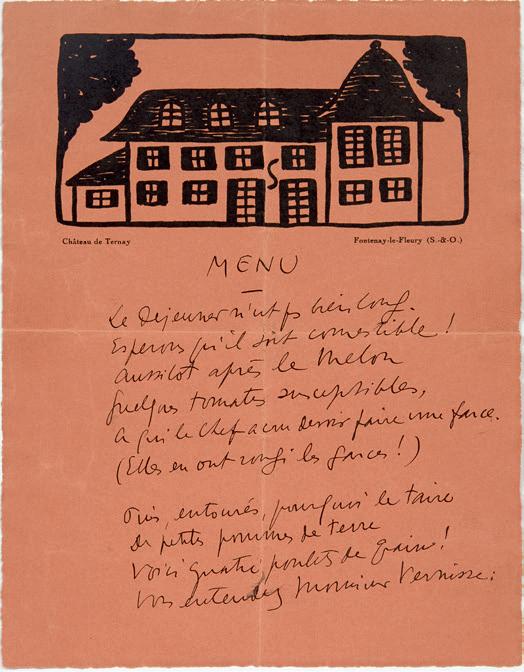 Château de Ternay
Fontenay-le-Fleury (S.-&-O.)
MENU
Le Dejeuner n'est ps bien long.
Esperons qu'il soit comestible !
Aussitot après le Melon
quelques tomates susceptibles,
A qui le Chef a cru devoir faire une farce.
(Elles en ont rougi les garces !)
Puis, entourés, pourquoi le taire
De petites pommes de terre
Voici quatre poulets de grain !
Vous entendez Monsieur Vernisse :